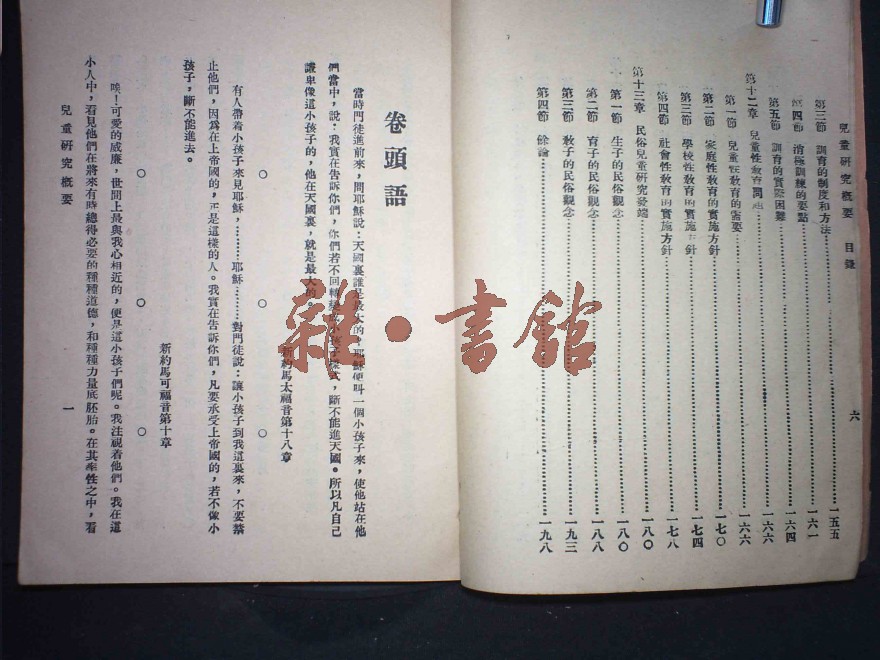 兒童研究概要 目錄
六
第三節 訓育的制度和方法……一五五
第四節 消極訓練的要點……一六一
第五節 訓育的實際困難……一六四
第十二章 兒童性教育問題……一六六
第一節 兒童性教育的需要……一六六
第二節 家庭性教育的實施方針……一七〇
第三節 學校性教育的實施方針……一七四
第四節 社會性教育的實施方針……一七八
第十三章 民俗兒童研究發端……一八〇
第一節 生子的民俗觀念……一八〇
第二節 育子的民俗觀念……一八八
第三節 教子的民俗觀念……一九三
第四節 餘論……一九八
卷頭語
當時門徒進前來，問耶穌說：天國裏誰是最大的。耶穌便叫一個小孩子來，使他站在他
們當中，說：我實在告訴你們，你們若不回轉變成小孩子樣式，斷不能進天國。所以凡自己
謙卑像這小孩子的，他在天國裏，就是最大的。
新約馬太福音第十八章
○ ○ ○
有人帶着小孩子來見耶穌，………耶穌………對門徒說：讓小孩子到我這裏來，不要禁
止他們，因爲在上帝國的，正是這樣的人。我實在告訴你們，凡要承受上帝國的，若不像小
孩子，斷不能進去。
新約馬可福音第十章
○ ○ ○
唉！可愛的威廉，世間上最與我心相近的，便是這小孩子們呢。我注視着他們。我在這
小人中，看見他們在將來有時總得必要的種種道德，和種種力量底胚胎。在其牽性之中，看
兒童研究概要
一
雜·書館